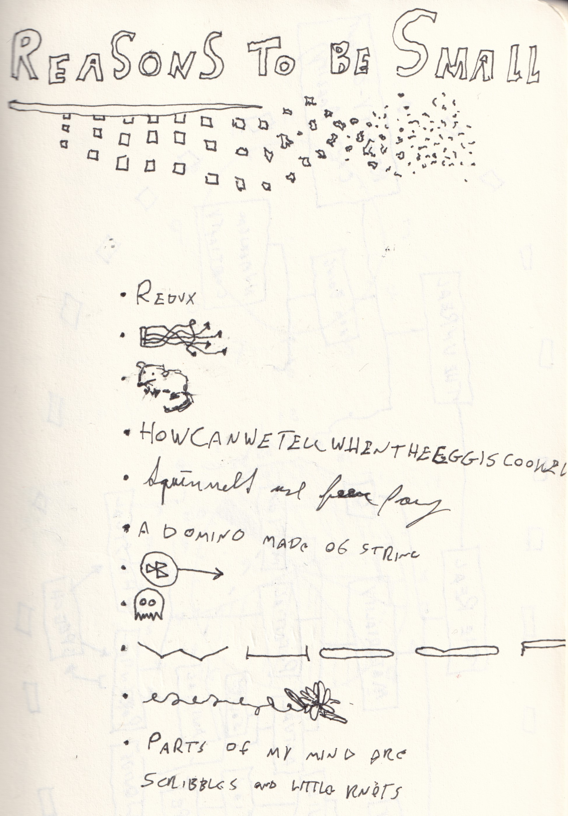 REASONS TO BE SMALL
REDUX
HOWCANWETELLWHENTHEEGGISCOOKED
Squirrels
A DOMINO MADE OF STRING
PARTS OF MY MIND ARE
SCRIBBLES AND LITTLE KNOTS